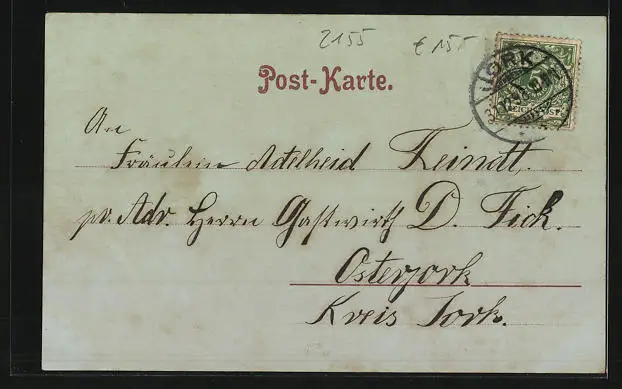 2155 € 155
JORK
5
REICHSPOST
Post-Karte.
An
Fräulein Adelheid Feindt,
pr. Adr. Herrn Gastwirth D. Fick.
Osterjork
Kreis Jork.